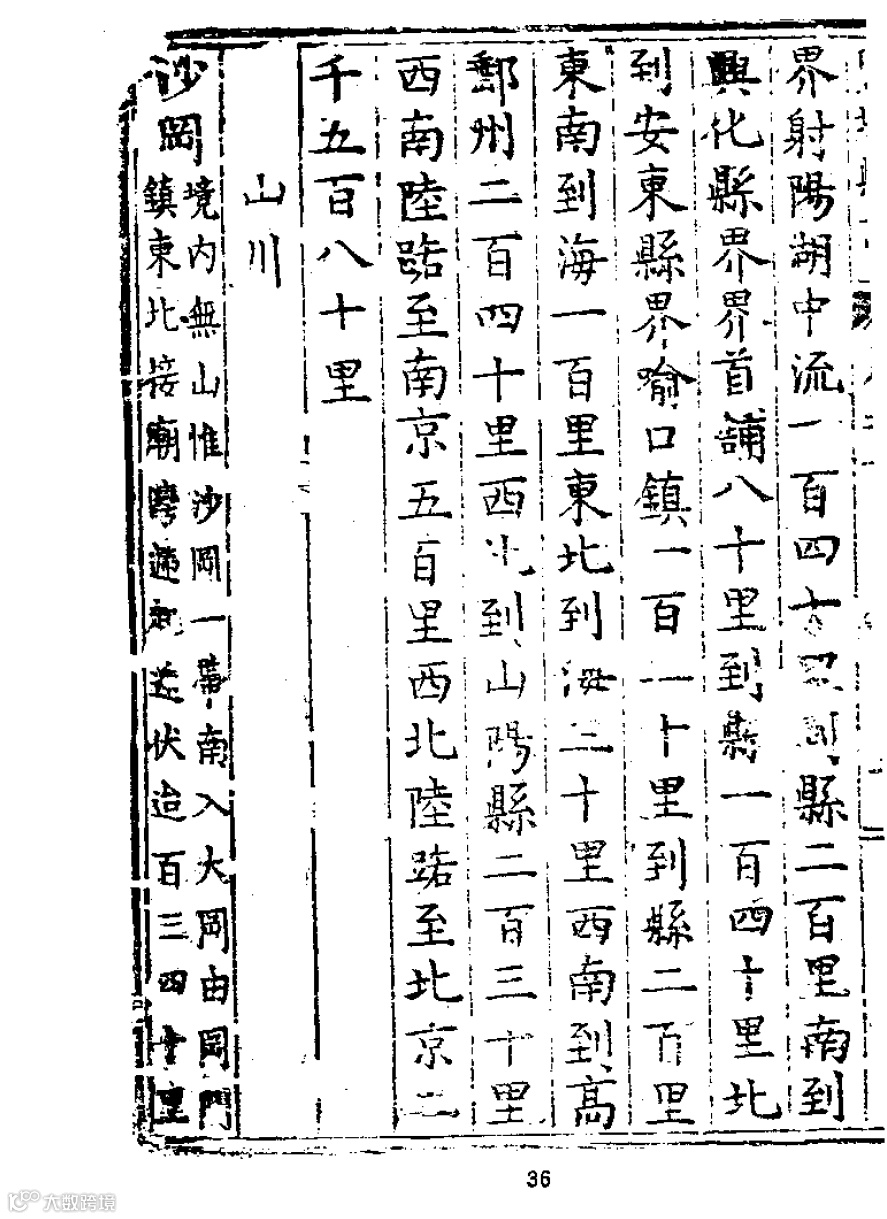 界射陽湖中流一百四十里到縣二百里南到
興化縣界界首鋪八十里到縣一百四十里北
到安東縣界喻口鎮一百一十里到縣二百里
東南到海一百里東北到海三十里西南到高
郵州二百四十里西北到山陽縣二百三十里
西南陸路至南京五百里西北陸路至北京二
千五百八十里
山川
沙岡
境内無山惟沙岡一帶南入大岡由岡門
鎮東北接廟灣迤起迄伏迨百三四十里
36
大数跨境